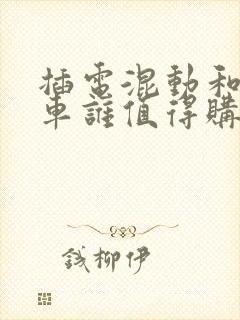 插電混動和
車誰值得購
錢柳伊